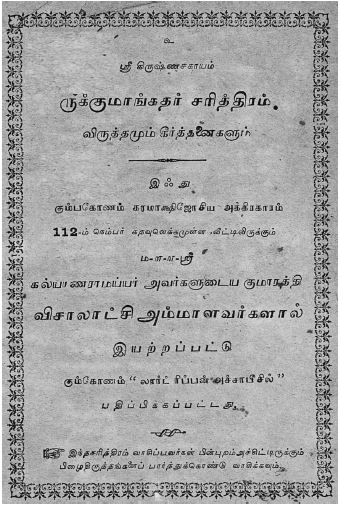 உ
ஸ்ரீ கிருஷ்ணசகாயம்
ருக்குமாங்கதர் சரித்திரம்.
விருத்தமும் கீர்த்தனைகளும்
இஃது
கும்பகோணம் ஜோசிய அக்கிரகாரம்
112-ம் நெம்பர் கதவுலெக்கமுள்ள வீட்டிலிருக்கும்
ம-ள-ள-ஸ்ரீ
கல்யாணராமய்யர் அவர்களுடைய குமாரத்தி
விசாலாட்சி அம்மாளவர்களால்
இயற்றப்பட்டு
கும்கோணம் "லார்ட் ரிப்பன் அச்சாபீசில்"
பதிப்பிக்கப்பட்டது.
இந்தசரித்திரம் வாசிப்பவர்கள் பின்புறம்அச்சிட்டிருக்கும்
பிழைதிருத்தங்களைப் பார்த்துக்கொண்டு வாசிக்கவும்.